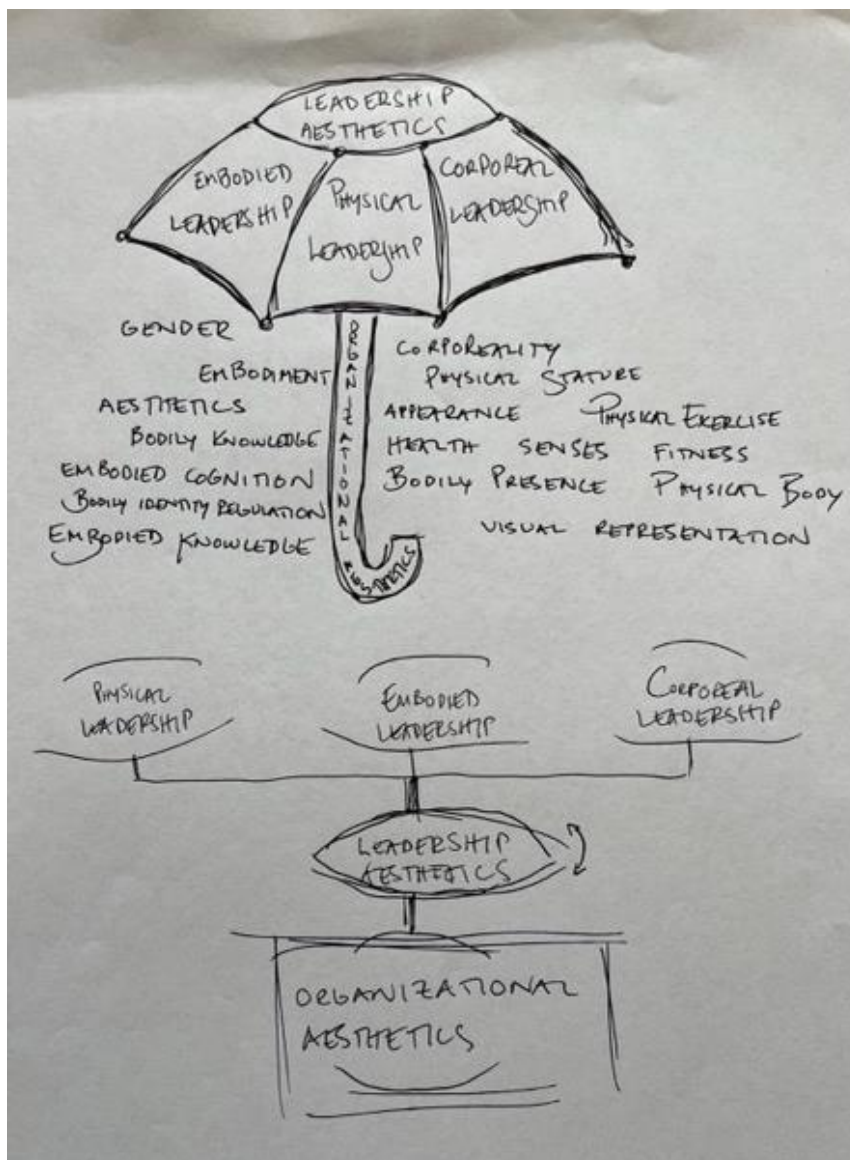 LEADERSHIP
AESTHETICS
EMBODIED
LEADERSHIP
PHYSICAL
LEADERSHIP
CORPOREAL
LEADERSHIP
ORGANIZATIONAL AESTHETICS
GENDER
EMBODIMENT
AESTHETICS
BODILY KNOWLEDGE
EMBODIED COGNITION
BODILY IDENTITY REGULATION
EMBODIED KNOWLEDGE
CORPOREALITY
PHYSICAL STATURE
APPEARANCE PHYSICAL EXERCISE
HEALTH SENSES FITNESS
BODILY PRESENCE PHYSICAL BODY
VISUAL REPRESENTATION
PHYSICAL
LEADERSHIP
EMBODIED
LEADERSHIP
CORPOREAL
LEADERSHIP
LEADERSHIP
AESTHETICS
ORGANIZATIONAL
AESTHETICS